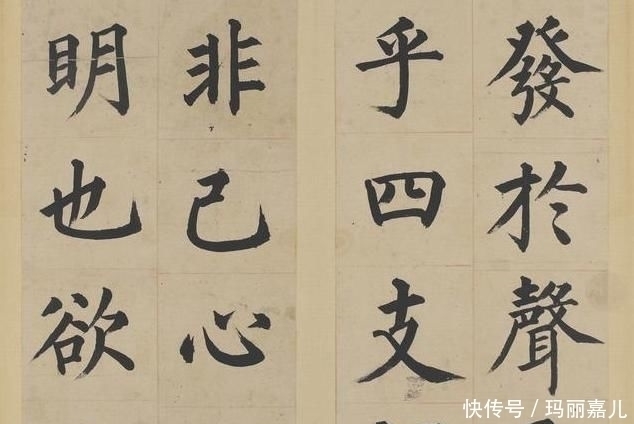 發於聲
乎四支
非己心
明也欲
快传号/玛丽嘉儿